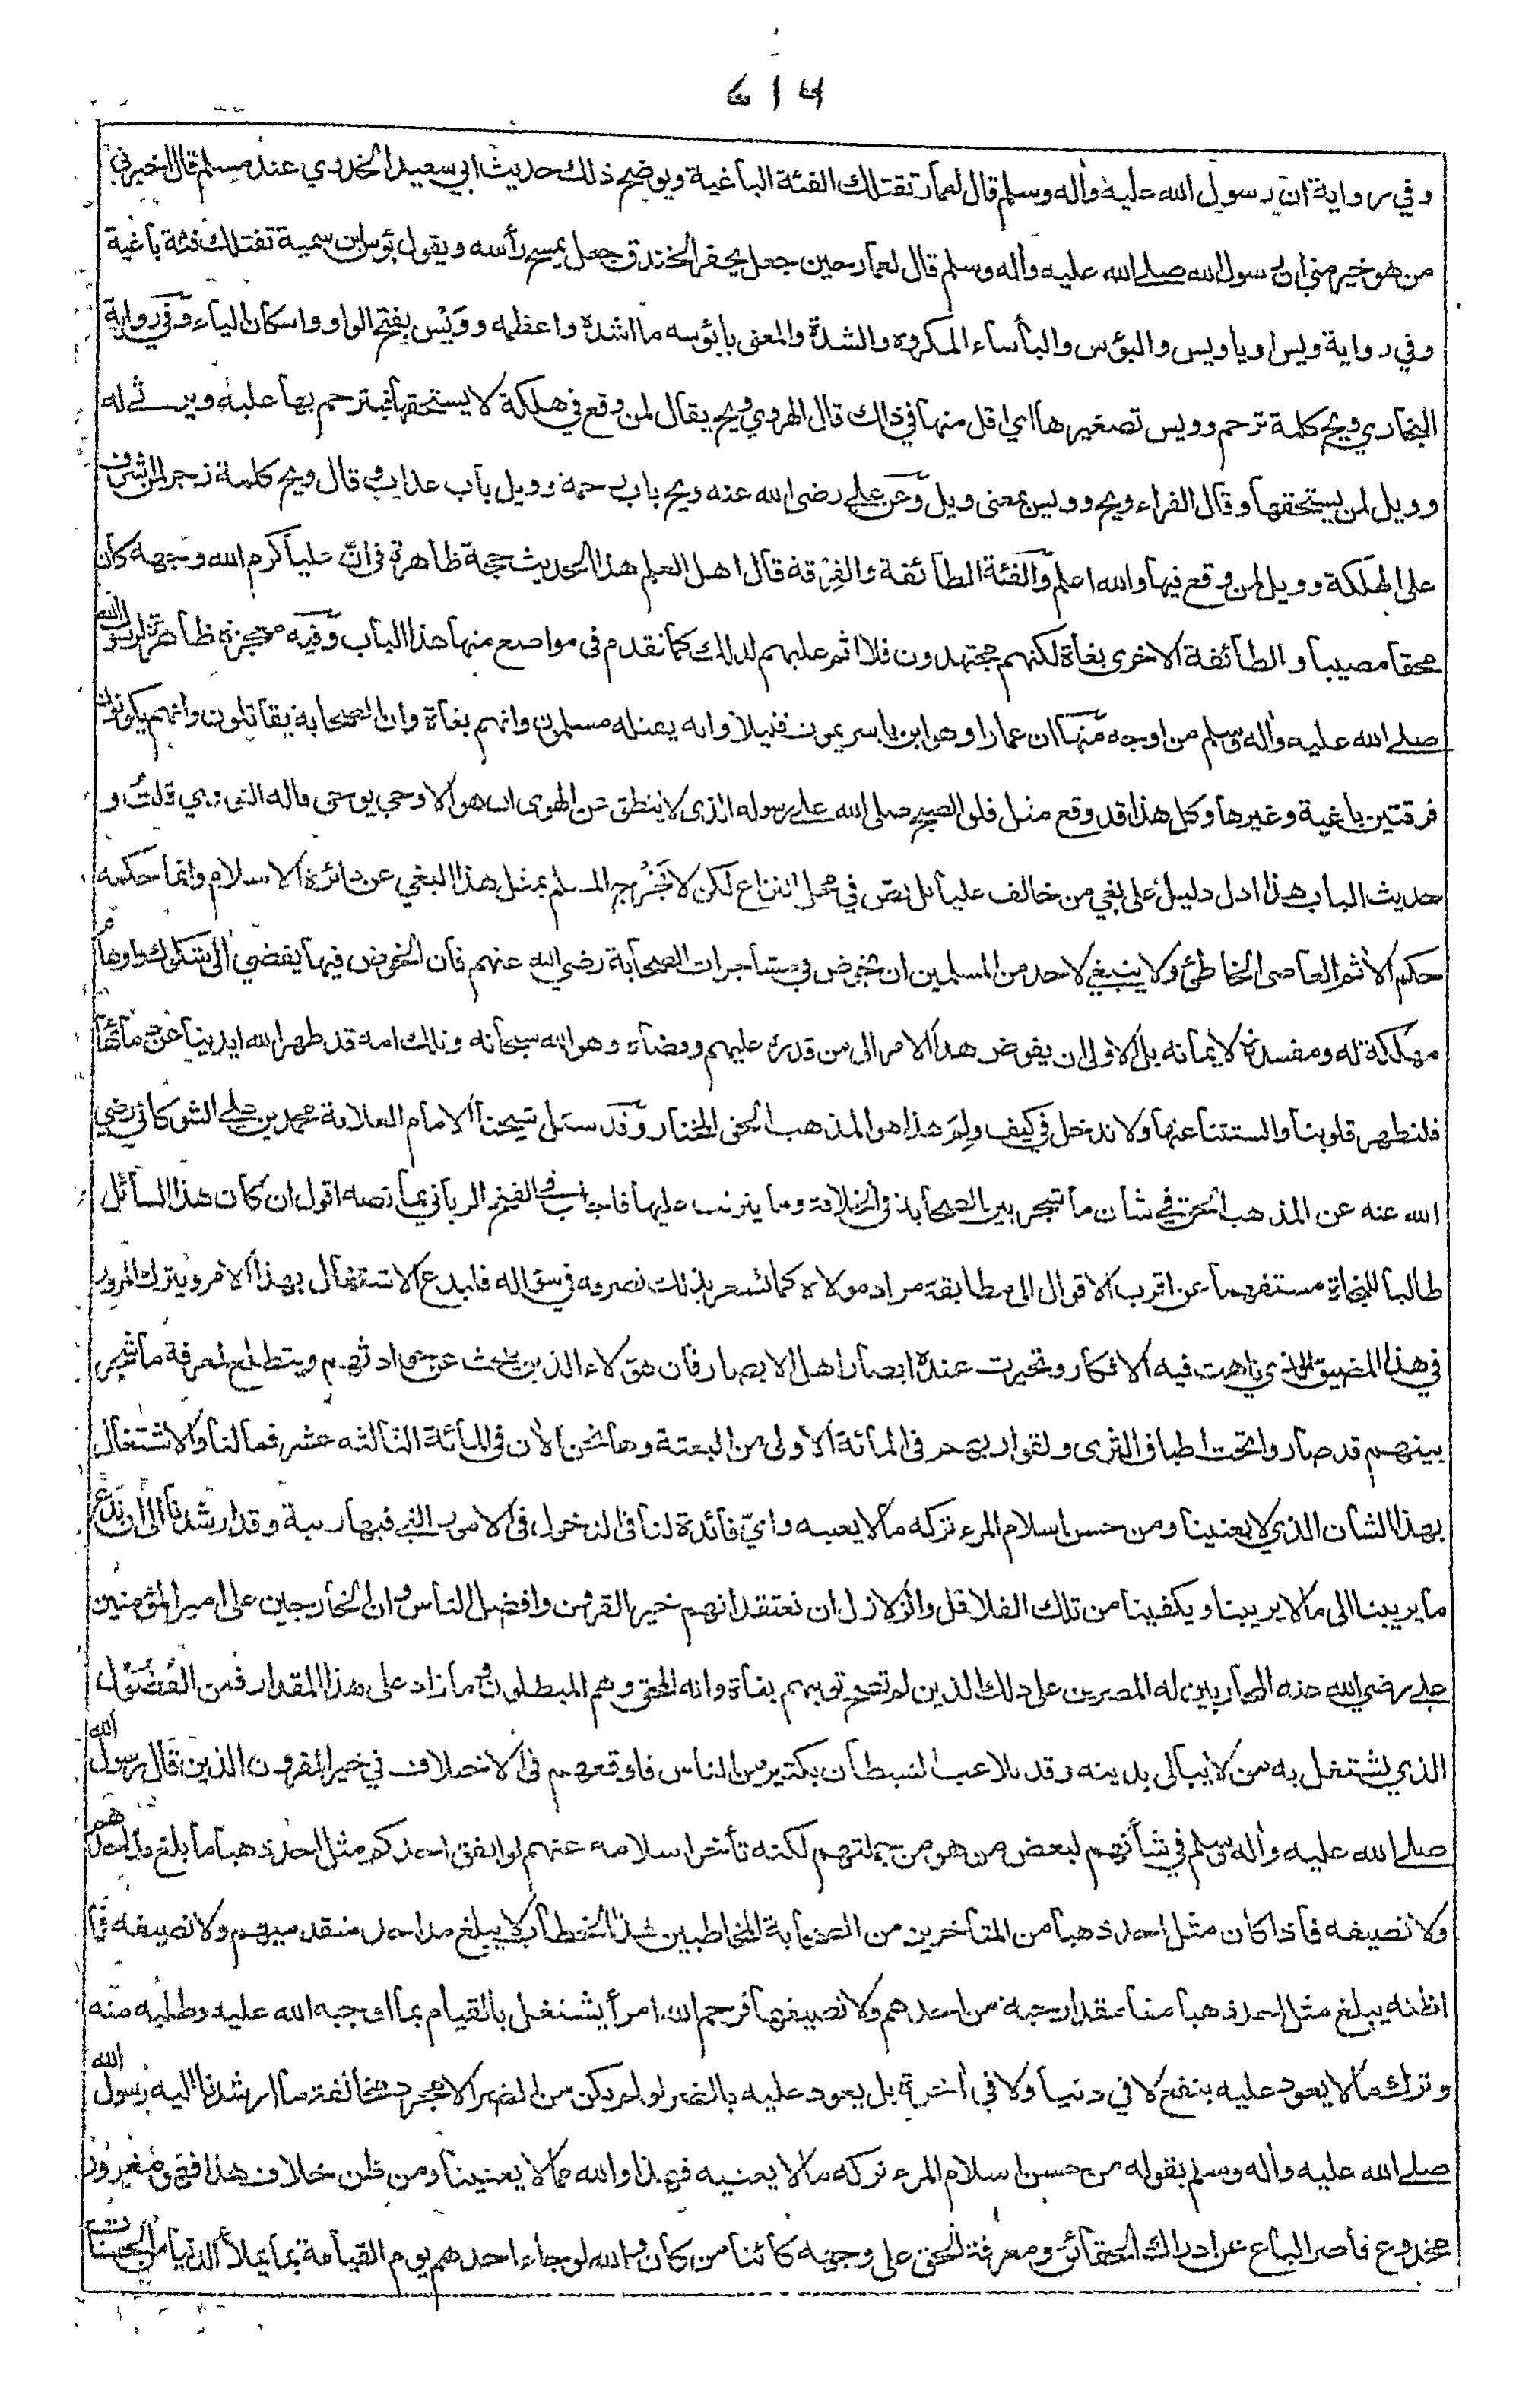 614
وفي رواية ان رسول الله عليه واٰله وسلم قال لعمار تقتلك الفئة الباغية ويوضح ذلك حديث ابي سعيد الخدري عند مسلم قال اخبرني
من هو خير مني ان رسول الله صلى الله عليه واٰله وسلم قال لعمار حين جعل يحفر الخندق جعل يمسح رأسه ويقول بؤس ابن سمية تقتلك فئة باغية
وفي رواية ويس او يا ويس والبؤس والبأساء المكروه والشدة والمعنى يا بؤسه ما اشده واعظمه وويس بفتح الواو واسكان الياء وفي رواية
البخاري ويح كلمة ترحم وويس تصغيرها اي اقل منها في ذلك قال الهروي ويح يقال لمن وقع في هلكة لا يستحقها فيترحم بها عليه ويرثى له
وويل لمن يستحقها وقال الفراء ويح وويس بمعنى ويل وعن علي رضي الله عنه ويح باب رحمة وويل باب عذاب وقال ويح كلمة زجر لمن اشرف
على الهلكة وويل لمن وقع فيها والله اعلم والفئة الطائفة والفرقة قال اهل العلم هذا الحديث حجة ظاهرة في انّ عليا كرم الله وجهه كان
محقا مصيبا والطائفة الاخرى بغاة لكنهم مجتهدون فلا اثم عليهم لذلك كما تقدم في مواضع منها هذا الباب وفيه معجزة ظاهرة لرسول الله
صلى الله عليه واٰله وسلم من اوجه منها ان عمارا وهو ابن ياسر يموت قتيلا وانه يقتله مسلمون وانهم بغاة وان الصحابة يقاتلون وانهم يكونون
فرقتين باغية وغيرها وكل هذا قد وقع مثل فلق الصبح صلى الله على رسوله الذي لا ينطق عن الهوى ان هو الا وحي يوحى قاله النووي قلت و
حديث الباب هذا ادل دليل على بغي من خالف عليا بل نص في محل النزاع لكن لا يخرج المسلم بمثل هذا البغي عن دائرة الاسلام وانما حكمه
حكم الاثم العاصي الخاطئ ولا ينبغي لاحد من المسلمين ان يخوض في مشاجرات الصحابة رضي الله عنهم فان الخوض فيها يفضي الى شكوك واوهام
مهلكة له ومفسدة لايمانه بل الاولى ان يفوض هذا الامر الى من قدره عليهم وقضاه وهو الله سبحانه وتلك امة قد طهر الله ايدينا عن دمائها
فلنطهر قلوبنا والسنتنا عنها ولا ندخل في كيف ولم هذا هو المذهب الحق المختار وقد سئل شيخنا الامام العلامة محمد بن علي الشوكاني رضي
الله عنه عن المذهب الحق في شأن ما شجر بين الصحابة في الخلافة وما يترتب عليها فاجاب في الفتح الرباني بما نصه اقول ان كان هذا السائل
طالبا للنجاة مستفهما عن اقرب الاقوال الى مطابقة مراد مولاه كما تشعر بذلك تصرفه في سؤاله فليدع الاشتغال بهذا الامر ويترك المرور
في هذا المضيق الذي تاهت فيه الافكار وتحيرت عنده ابصار اهل الابصار فان هؤلاء الذين يبحث عن حوادثهم ويتطلع لمعرفة ما شجر
بينهم قد صاروا تحت اطباق الثرى ولقوا ربهم في المائة الاولى من البعثة وها نحن الاٰن في المائة الثالثة عشر فما لنا والاشتغال
بهذا الشان الذي لا يعنينا ومن حسن اسلام المرء تركه ما لا يعنيه واي فائدة لنا في الدخول في الامور التي فيها ريبة وقد ارشدنا الى ان ندع
ما يريبنا الى ما لا يريبنا ويكفينا من تلك القلاقل والزلازل ان نعتقد انهم خير القرون وافضل الناس وان الخارجين على امير المؤمنين
علي رضي الله عنه المحاربين له المصرين على ذلك الذين لم تصح توبتهم بغاة وانه المحق وهم المبطلون وما زاد على هذا المقدار فمن الفضول
الذي يشتغل به من لا يبالي بدينه وقد تلاعب الشيطان بكثير من الناس فاوقعهم في الاختلاف في خير القرون الذين قال رسول الله
صلى الله عليه واٰله وسلم في شأنهم لبعض من هو من جملتهم لكنه تأخر اسلامه عنهم لو انفق احدكم مثل احد ذهبا ما بلغ مد احدهم
ولا نصيفه فاذا كان مثل احد ذهبا من المتأخرين من الصحابة المخاطبين بهذا الخطاب لا يبلغ مد احد من متقدميهم ولا نصيفه فما
اظنه يبلغ مثل احد ذهبا منا مقدار حبة من احدهم ولا نصيفها فرحم الله امرأ يشتغل بالقيام بما اوجبه الله عليه وطلبه منه
وترك ما لا يعود عليه بنفع لا في دنيا ولا في اٰخرة بل يعود عليه بالضرر لو لم يكن من الضرر الا مجرد مخالفته ما ارشدنا اليه رسول الله
صلى الله عليه واٰله وسلم بقوله من حسن اسلام المرء تركه ما لا يعنيه فهذا والله مما لا يعنينا ومن ظن خلاف هذا فهو مغرور
مخدوع قاصر الباع عن ادراك الحقائق ومعرفة الحق على وجهه كائنا من كان والله لو جاء احدهم يوم القيامة بما يملأ الدنيا من الحسنات